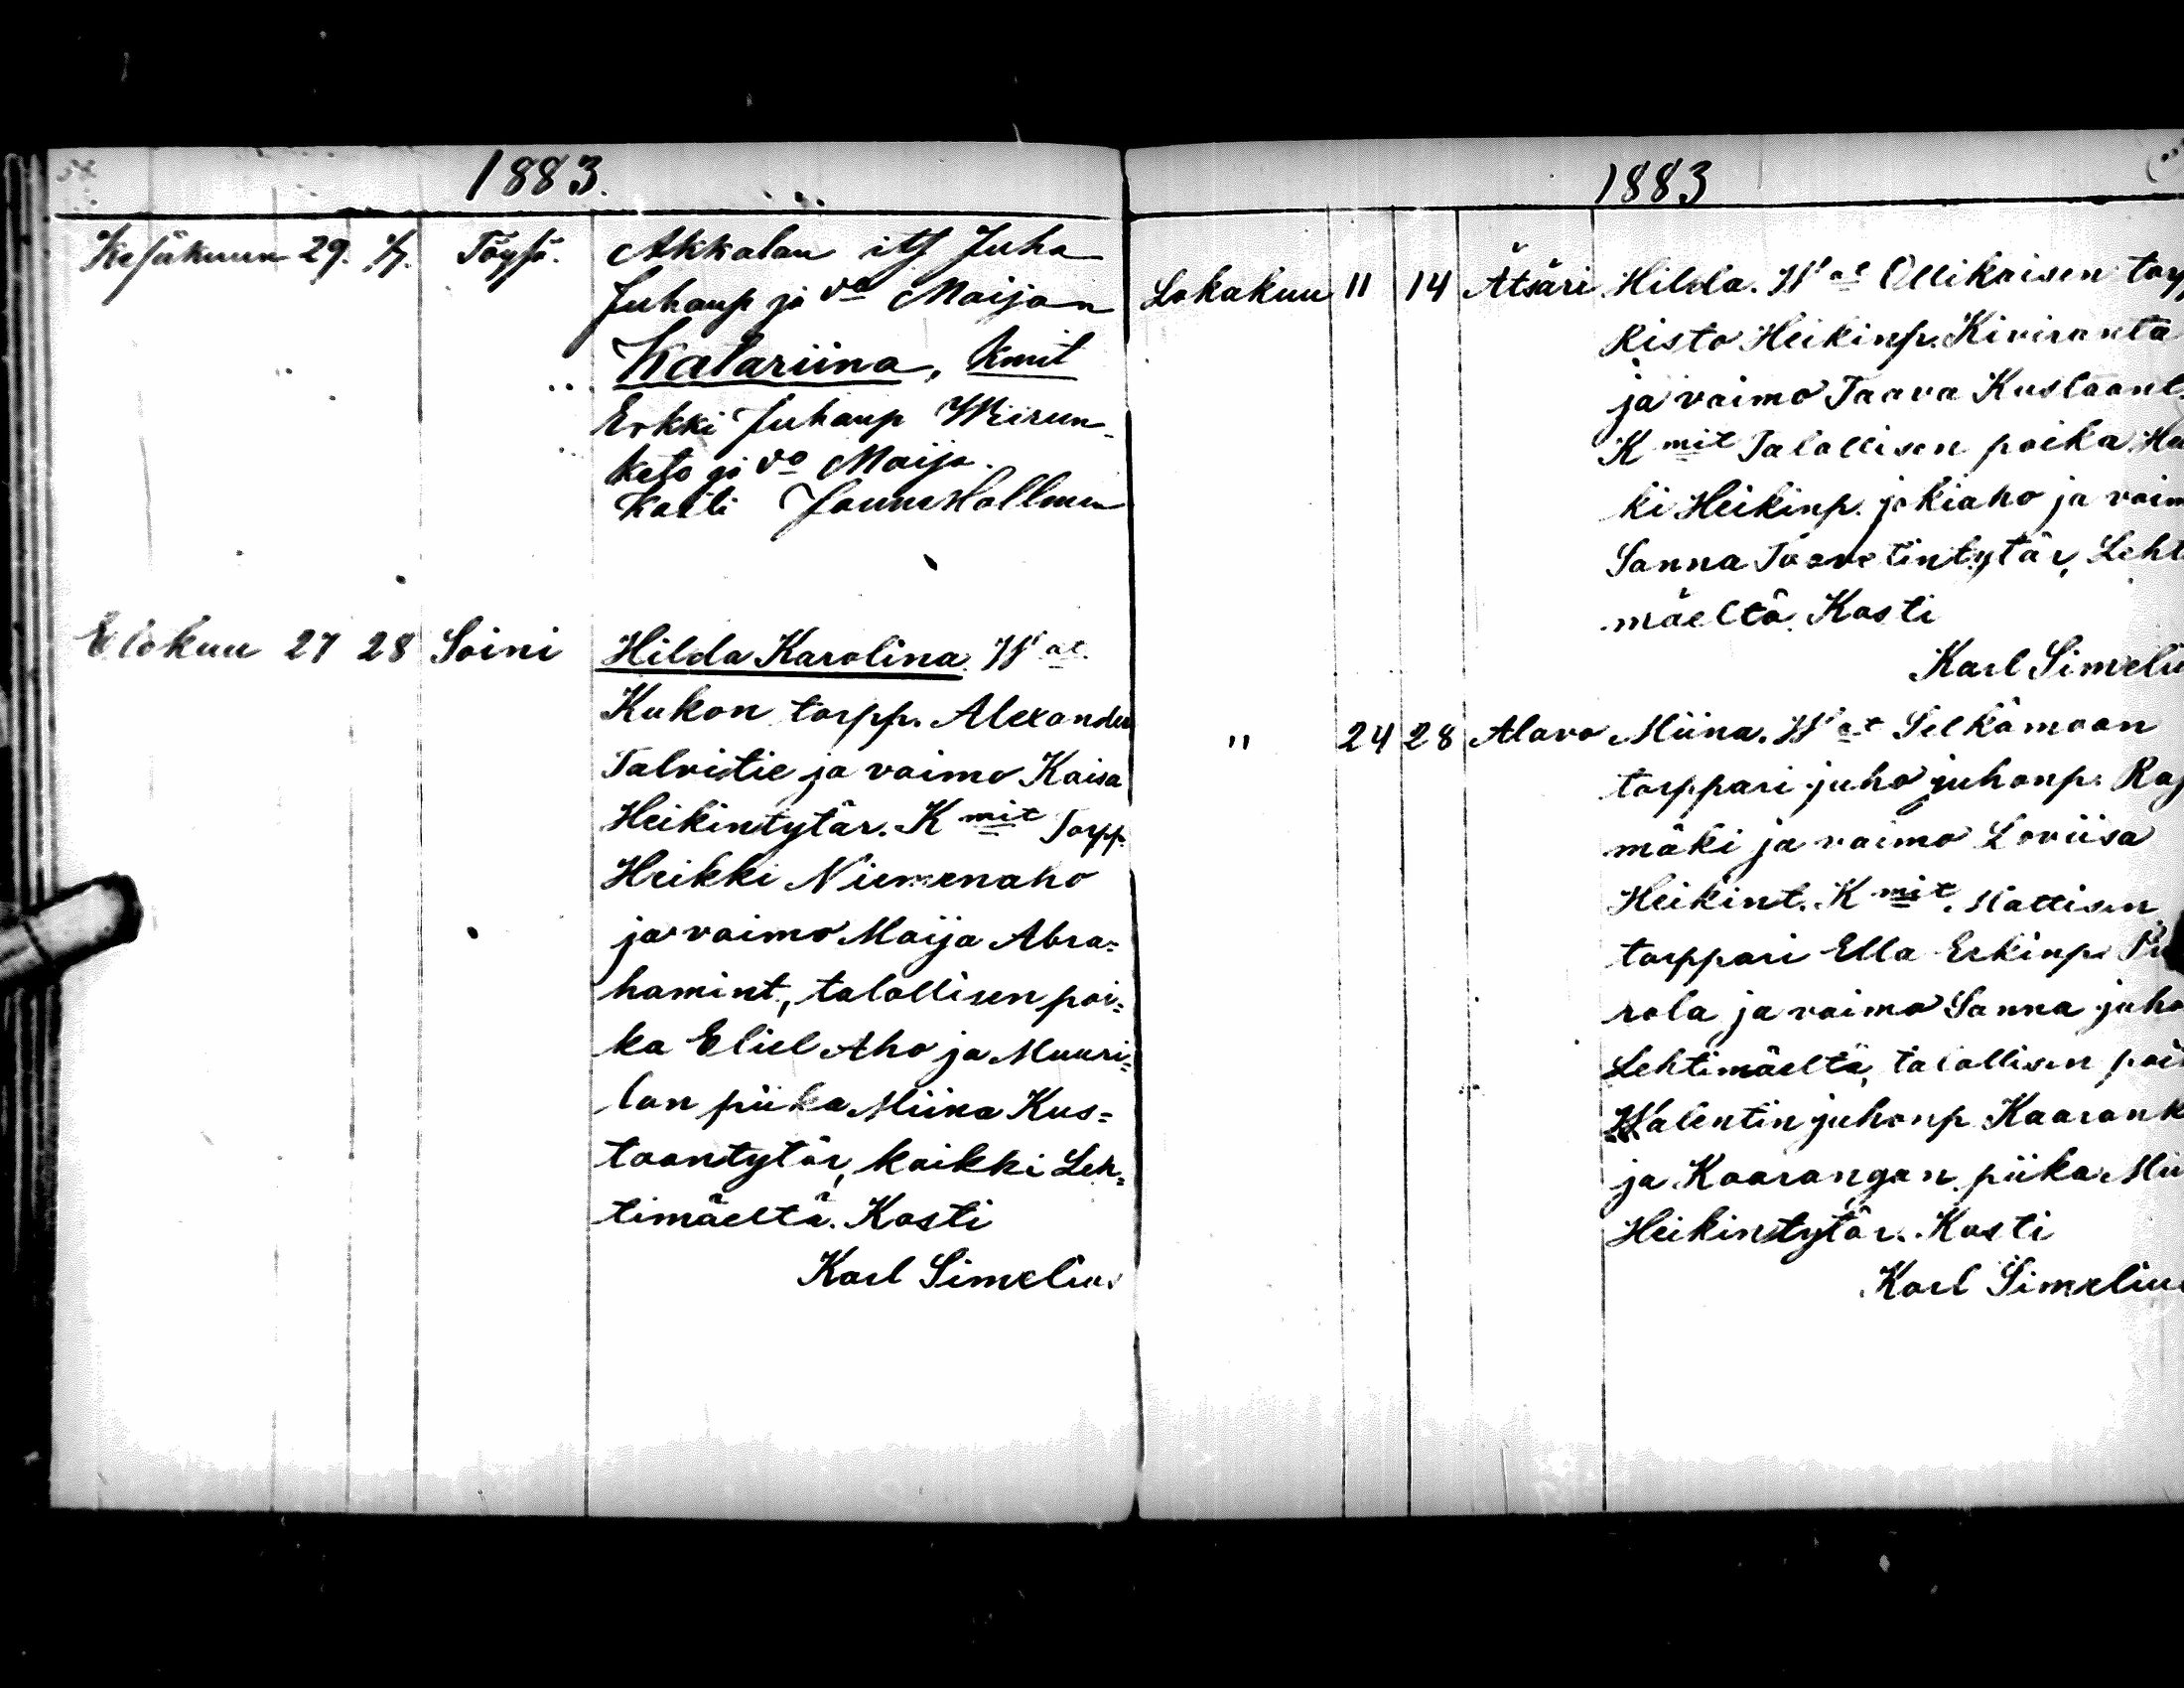 1883.
Kesäkuun 29. Töysä. Akkalan its Juha
Juhanp ja vo Maijan
Katariina, Kmit
Erkki Juhanp
keto ja vo Maija.
Kasti
Elokuu 27 28 Soini Hilda Karolina. Wat
Kukon torpp. Alexander
Talvitie ja vaimo Kaisa
Heikintytär. K mit Torpp.
Heikki Niemenaho
ja vaimo Maija Abra=
hamint, talollisen poi=
ka Eliel Aho ja Muuri=
lan piika Miina Kus=
taantytär, kaikki Leh=
timäeltä. Kasti
Karl Simelius
1883
Lokakuu 11 14 Ätsäri Hilda. Wat Ollikaisen torp
Risto Heikinp. Kiviranta
ja vaimo Taava Kustaant.
K mit Talollisen poika Hei
ki Heikinp. jokiaho ja vaim
Sanna Taavetintytär, Leht
mäeltä. Kasti
Karl Simeliu
" 24 28 Alavo Miina. Wat Selkämaan
torppari juho juhonp. Raj
mäki ja vaimo Loviisa
Heikint. K mit. Mattisen
torppari Ella Erkinp.
rola ja vaimo Sanna juho
Lehtimäeltä, talollisen poi
Walentin juhonp Kaarank
ja Kaarangan piika Mii
Heikintytär. Kasti
Karl Simeliu